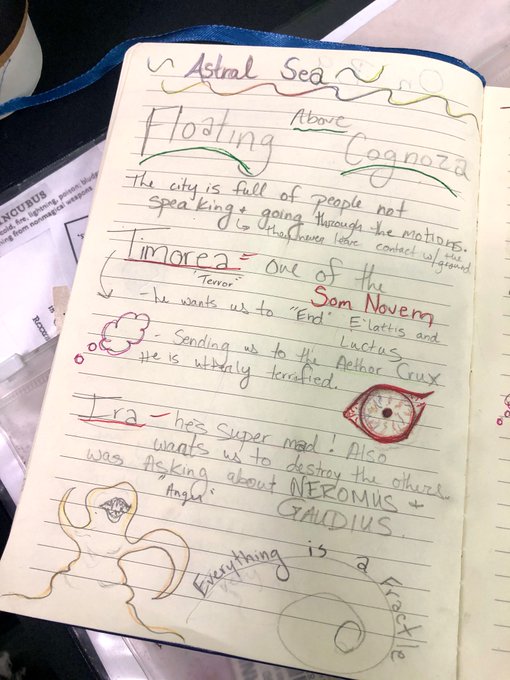 Astral Sea
Floating Above Cognoza
The city is full of people not
speaking + going through the motions.
↳ they never leave contact w/ the ground
Timorea = one of the
"Terror"
Som Novem
- he wants us to "End" E'lattis and
Luctus
- Sending us to the Aethor Crux
He is utterly terrified.
Ira - he's super mad! Also
wants us to destroy the others.
was Asking about NEROMUS +
"Anger"
GAUDIUS.
Everything is a Fractle
INCUBUS
cold, fire, lightning, poison; bludg
from nonmagical weapons